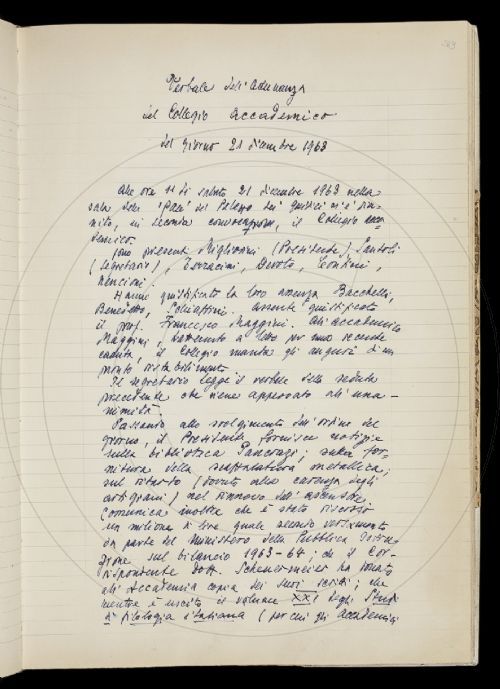 Verbale dell'Adunanza
del Collegio Accademico
del giorno 21 dicembre 1963
Alle ore 11 di sabato 21 dicembre 1963 nella
sala delle "Pale" del Palagio dei Giudici si è riu-
nito, in seconda convocazione, il Collegio acca-
demico.
Sono presenti Migliorini (Presidente), Santoli
(Segretario), Terracini, Devoto, Contini,
Nencioni.
Hanno giustificato la loro assenza Bacchelli,
Benedetto, Schiaffini. Assente giustificato
il prof. Francesco Maggini. All'accademico
Maggini, trattenuto a letto per una recente
caduta, il Collegio manda gli auguri di un
pronto ristabilimento.
Il segretario legge il verbale della seduta
precedente che viene approvato all'una-
nimità.
Passando allo svolgimento dell'ordine del
giorno, il Presidente fornisce notizie
sulla biblioteca Pancrazi; sulla for-
nitura della scaffalatura metallica;
sul ritardo (dovuto alla carenza degli
artigiani) nel rinnovo dell'ascensore.
Comunica inoltre che è stato riscosso
un milione di lire quale secondo versamento
da parte del Ministero della Pubblica Istru-
zione sul bilancio 1963-64; che il Cor-
rispondente dott. Scheuermeier ha donato
all'Accademia copia dei suoi scritti; che
mentre è uscito il volume XXI degli Studi
di filologia italiana (per cui gli Accademici